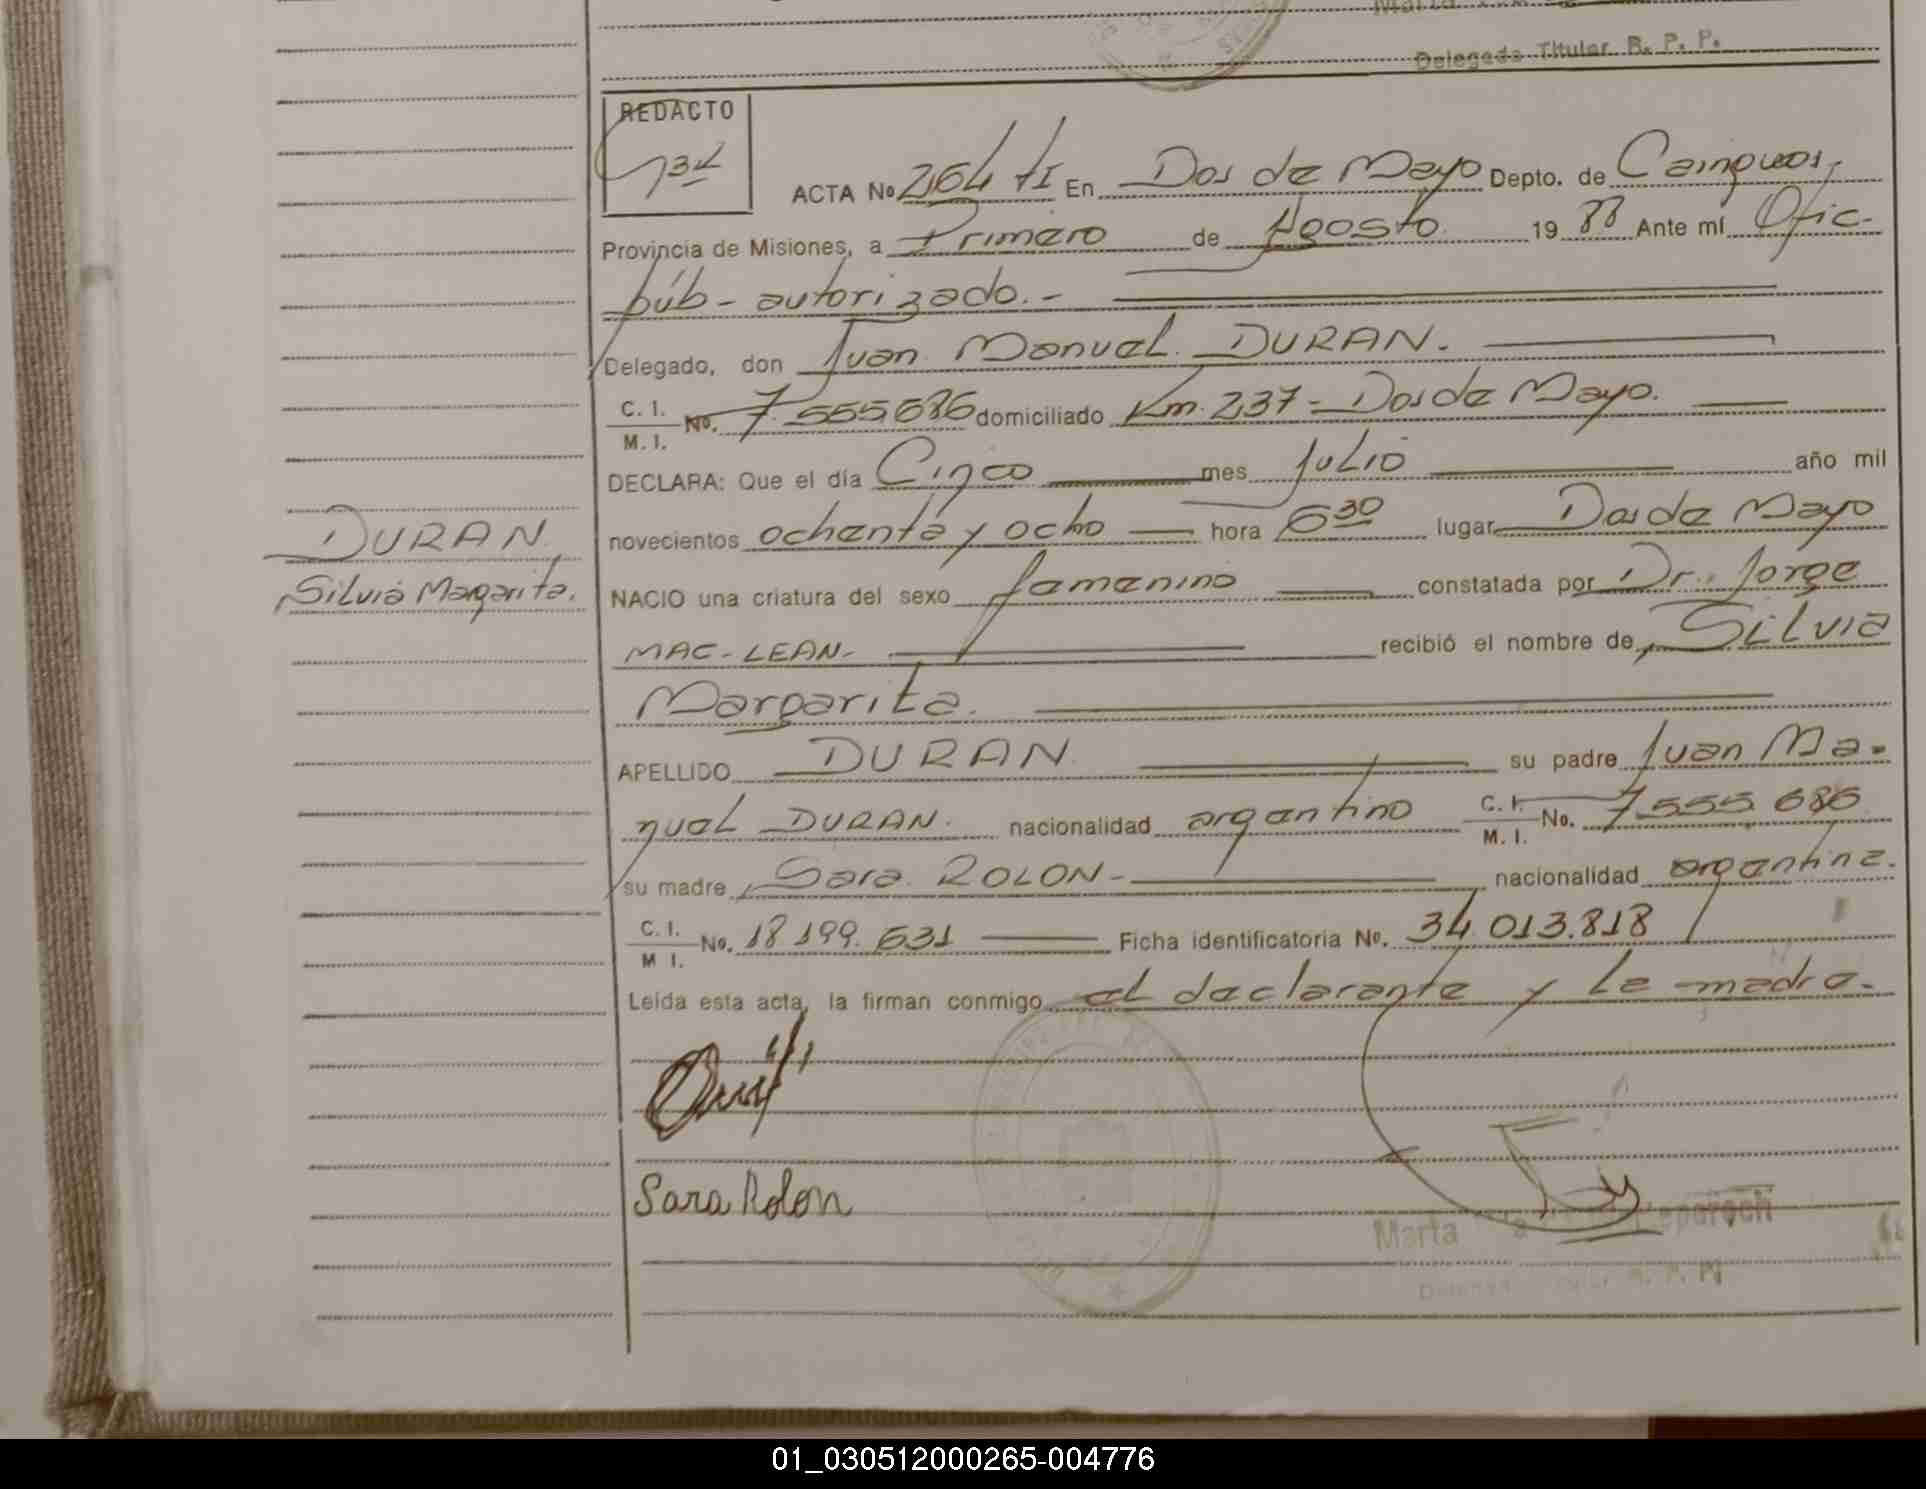 Delegada Titular R. P. P.
REDACTO
ACTA No 264 tI En Dos de Mayo Depto. de Cainguas,
Provincia de Misiones, a Primero de Agosto 19 88 Ante mí Ofic.
púb- autorizado.-
Delegado, don Juan Manuel DURAN.
C. I.
M. I. No. 7.555.686 domiciliado Km. 237 - Dos de Mayo.
DECLARA: Que el día Cinco mes Julio año mil
novecientos ochenta y ocho hora 6 30 lugar Dos de Mayo
DURAN
Silvia Margarita.
NACIO una criatura del sexo femenino constatada por Dr. Jorge
MAC-LEAN- recibió el nombre de Silvia
Margarita.
APELLIDO DURAN su padre Juan Ma-
nuel DURAN. nacionalidad argentino C. I. M. I. No. 7.555.686
su madre, Sara ROLON- nacionalidad argentina.
C. I.
M I. No. 18.199.631 Ficha identificatoria No. 34.013.818
Leída esta acta, la firman conmigo el declarante y la madre.
Sara Rolon
Marta
01_030512000265-004776